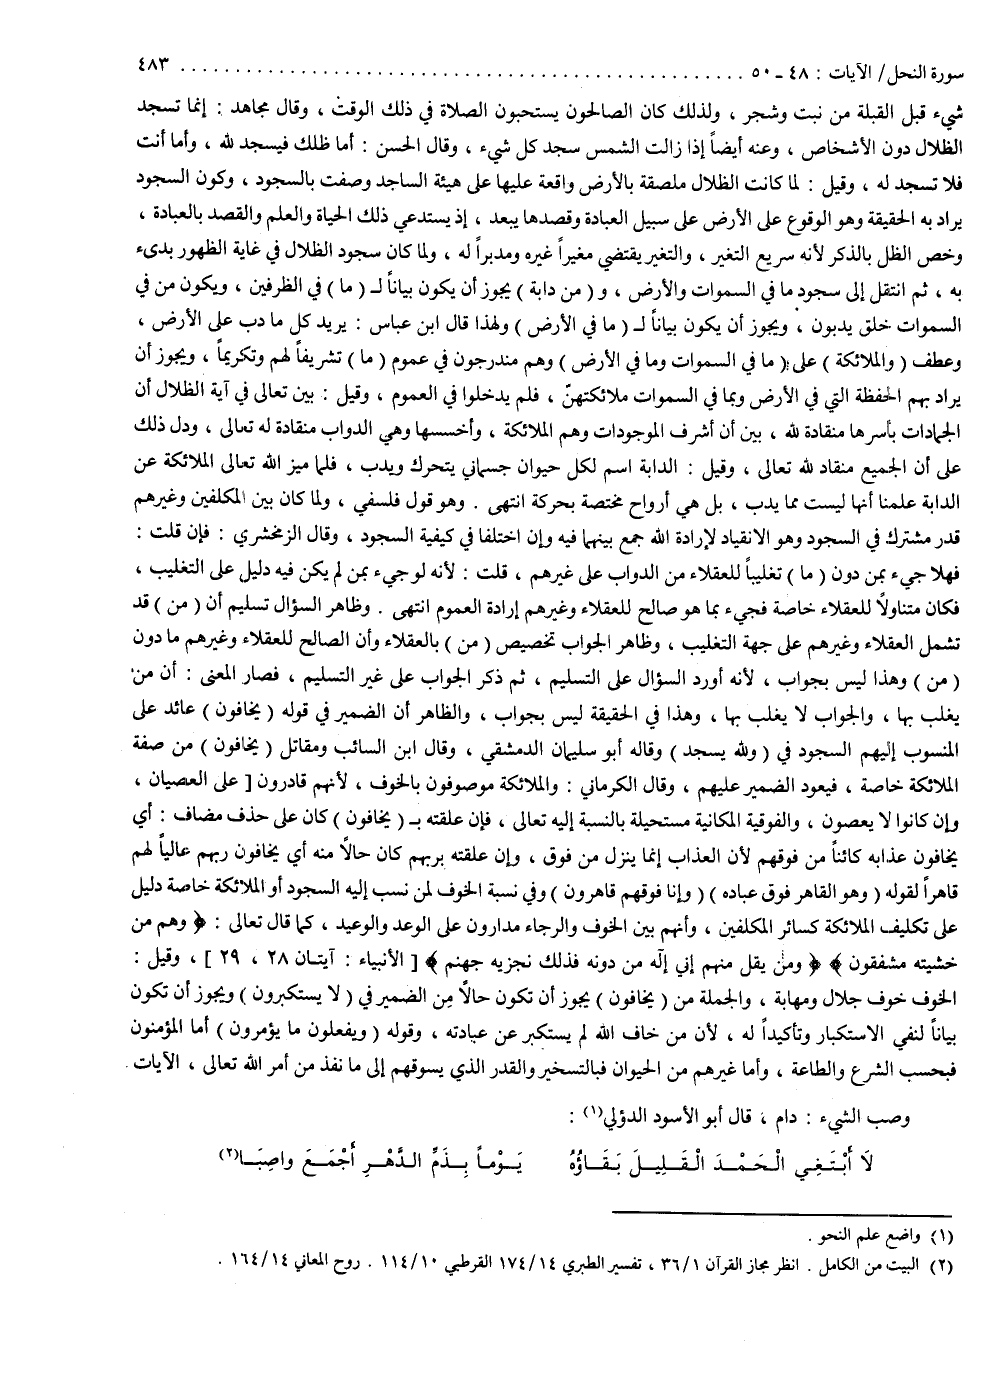 سورة النحل/ الآيات : ٤٨ ـ ٥٠ ........................................................ ٤٨٣
شيء قبل القبلة من نبت وشجر ، ولذلك كان الصالحون يستحبون الصلاة في ذلك الوقت ، وقال مجاهد : إنما تسجد
الظلال دون الأشخاص ، وعنه أيضاً إذا زالت الشمس سجد كل شيء ، وقال الحسن : أما ظلك فيسجد لله ، وأما أنت
فلا تسجد له ، وقيل : لما كانت الظلال ملصقة بالأرض واقعة عليها على هيئة الساجد وصفت بالسجود ، وكون السجود
يراد به الحقيقة وهو الوقوع على الأرض على سبيل العبادة وقصدها يبعد ، إذ يستدعي ذلك الحياة والعلم والقصد بالعبادة ،
وخص الظل بالذكر لأنه سريع التغير ، والتغير يقتضي مغيراً غيره ومدبراً له ، ولما كان سجود الظلال في غاية الظهور بدىء
به ، ثم انتقل إلى سجود ما في السموات والأرض ، و ( من دابة ) يجوز أن يكون بياناً لـ ( ما ) في الظرفين ، ويكون من في
السموات خلق يدبون ، ويجوز أن يكون بياناً لـ ( ما في الأرض ) ولهذا قال ابن عباس : يريد كل ما دب على الأرض ،
وعطف ( والملائكة ) على ( ما في السموات وما في الأرض ) وهم مندرجون في عموم ( ما ) تشريفاً لهم وتكريماً ، ويجوز أن
يراد بهم الحفظة التي في الأرض وبما في السموات ملائكتهنّ ، فلم يدخلوا في العموم ، وقيل : بين تعالى في آية الظلال أن
الجمادات بأسرها منقادة لله ، بين أن أشرف الموجودات وهم الملائكة ، وأخسسها وهي الدواب منقادة له تعالى ، ودل ذلك
على أن الجميع منقاد لله تعالى ، وقيل : الدابة اسم لكل حيوان جسماني يتحرك ويدب ، فلما ميز الله تعالى الملائكة عن
الدابة علمنا أنها ليست مما يدب ، بل هي أرواح مختصة بحركة انتهى . وهو قول فلسفي ، ولما كان بين المكلفين وغيرهم
قدر مشترك في السجود وهو الانقياد لإرادة الله جمع بينهما فيه وإن اختلفا في كيفية السجود ، وقال الزمخشري : فإن قلت :
فهلا جيء بمن دون ( ما ) تغليباً للعقلاء من الدواب على غيرهم ، قلت : لأنه لو جيء بمن لم يكن فيه دليل على التغليب ،
فكان متناولاً للعقلاء خاصة فجيء بما هو صالح للعقلاء وغيرهم إرادة العموم انتهى . وظاهر السؤال تسليم أن ( من ) قد
تشمل العقلاء وغيرهم على جهة التغليب ، وظاهر الجواب تخصيص ( من ) بالعقلاء وأن الصالح للعقلاء وغيرهم ما دون
( من ) وهذا ليس بجواب ، لأنه أورد السؤال على التسليم ، ثم ذكر الجواب على غير التسليم ، فصار المعنى : أن من
يغلب بها ، والجواب لا يغلب بها ، وهذا في الحقيقة ليس بجواب ، والظاهر أن الضمير في قوله ( يخافون ) عائد على
المنسوب إليهم السجود في ( ولله يسجد ) وقاله أبو سليمان الدمشقي ، وقال ابن السائب ومقاتل ( يخافون ) من صفة
الملائكة خاصة ، فيعود الضمير عليهم ، وقال الكرماني : والملائكة موصوفون بالخوف ، لأنهم قادرون [ على العصيان ،
وإن كانوا لا يعصون ، والفوقية المكانية مستحيلة بالنسبة إليه تعالى ، فإن علقته بـ ( يخافون ) كان على حذف مضاف : أي
يخافون عذابه كائناً من فوقهم لأن العذاب إنما ينزل من فوق ، وإن علقته بربهم كان حالاً منه أي يخافون ربهم عالياً لهم
قاهراً لقوله ( وهو القاهر فوق عباده ) ( وإنا فوقهم قاهرون ) وفي نسبة الخوف لمن نسب إليه السجود أو الملائكة خاصة دليل
على تكليف الملائكة كسائر المكلفين ، وأنهم بين الخوف والرجاء مدارون على الوعد والوعيد ، كما قال تعالى : ﴿ وهم من
خشيته مشفقون ﴾ ﴿ ومن يقل منهم إني إلٰه من دونه فذلك نجزيه جهنم ﴾ [ الأنبياء : آيتان ٢٨ ، ٢٩ ] ، وقيل :
الخوف خوف جلال ومهابة ، والجملة من ( يخافون ) يجوز أن تكون حالاً من الضمير في ( لا يستكبرون ) ويجوز أن تكون
بياناً لنفي الاستكبار وتأكيداً له ، لأن من خاف الله لم يستكبر عن عبادته ، وقوله ( ويفعلون ما يؤمرون ) أما المؤمنون
فبحسب الشرع والطاعة ، وأما غيرهم من الحيوان فبالتسخير والقدر الذي يسوقهم إلى ما نفذ من أمر الله تعالى ، الآيات .
وصب الشيء : دام ، قال أبو الأسود الدؤلي(١) :
لَا أَبْتَغِي الْحَمْدَ الْقَلِيلَ بَقَاؤُهُ يَوْماً بِذَمِّ الدَّهْرِ أَجْمَعَ واصِبَا(٢)
(١) واضع علم النحو .
(٢) البيت من الكامل . انظر مجاز القرآن ٣٦/١ ، تفسير الطبري ١٧٤/١٤ القرطبي ١١٤/١٠ . روح المعاني ١٦٤/١٤ .